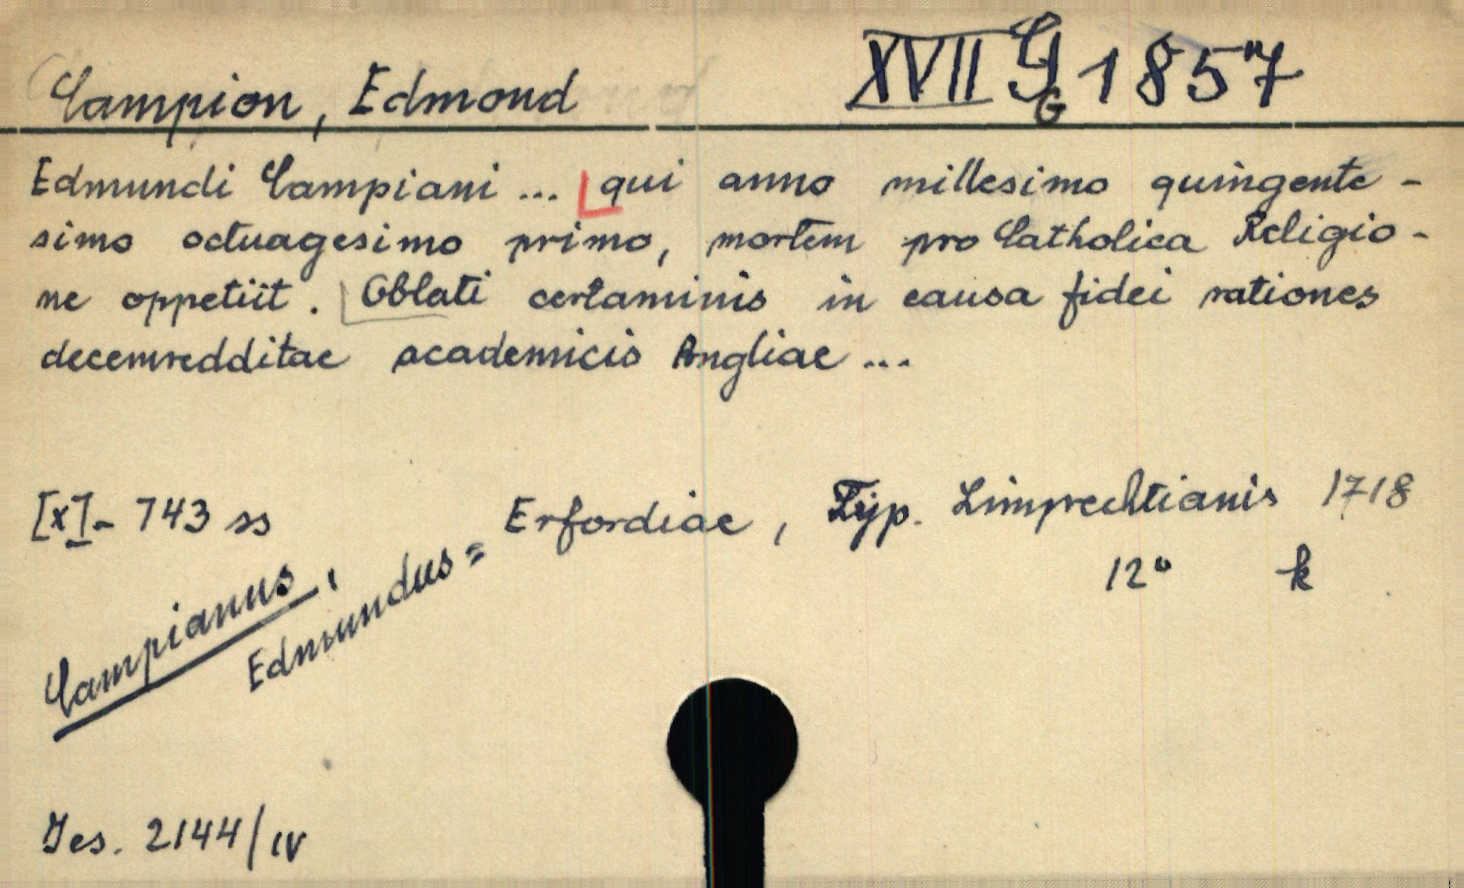 Campion, Edmond XVII G 1857
Edmundi Campiani ... qui anno millesimo quingente-
simo octuagesimo primo, mortem pro Catholica Religio-
ne oppetiit. Oblati certaminis in causa fidei rationes
decemredditae academicis Angliae ...
[x]- 743 ss Erfordiae, Typ. Limprechtianis 1718
12° k
Campianus,
Edmundus =
Jes. 2144/IV